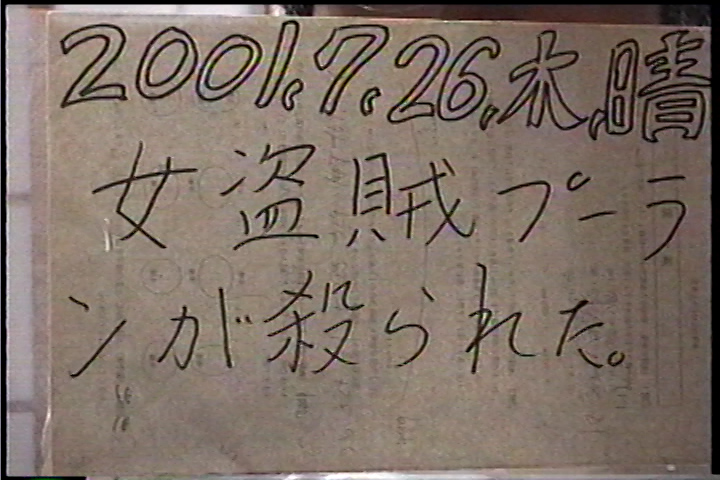 2001.7.26.木.晴
女盗賊プーラ
ンが殺られた。